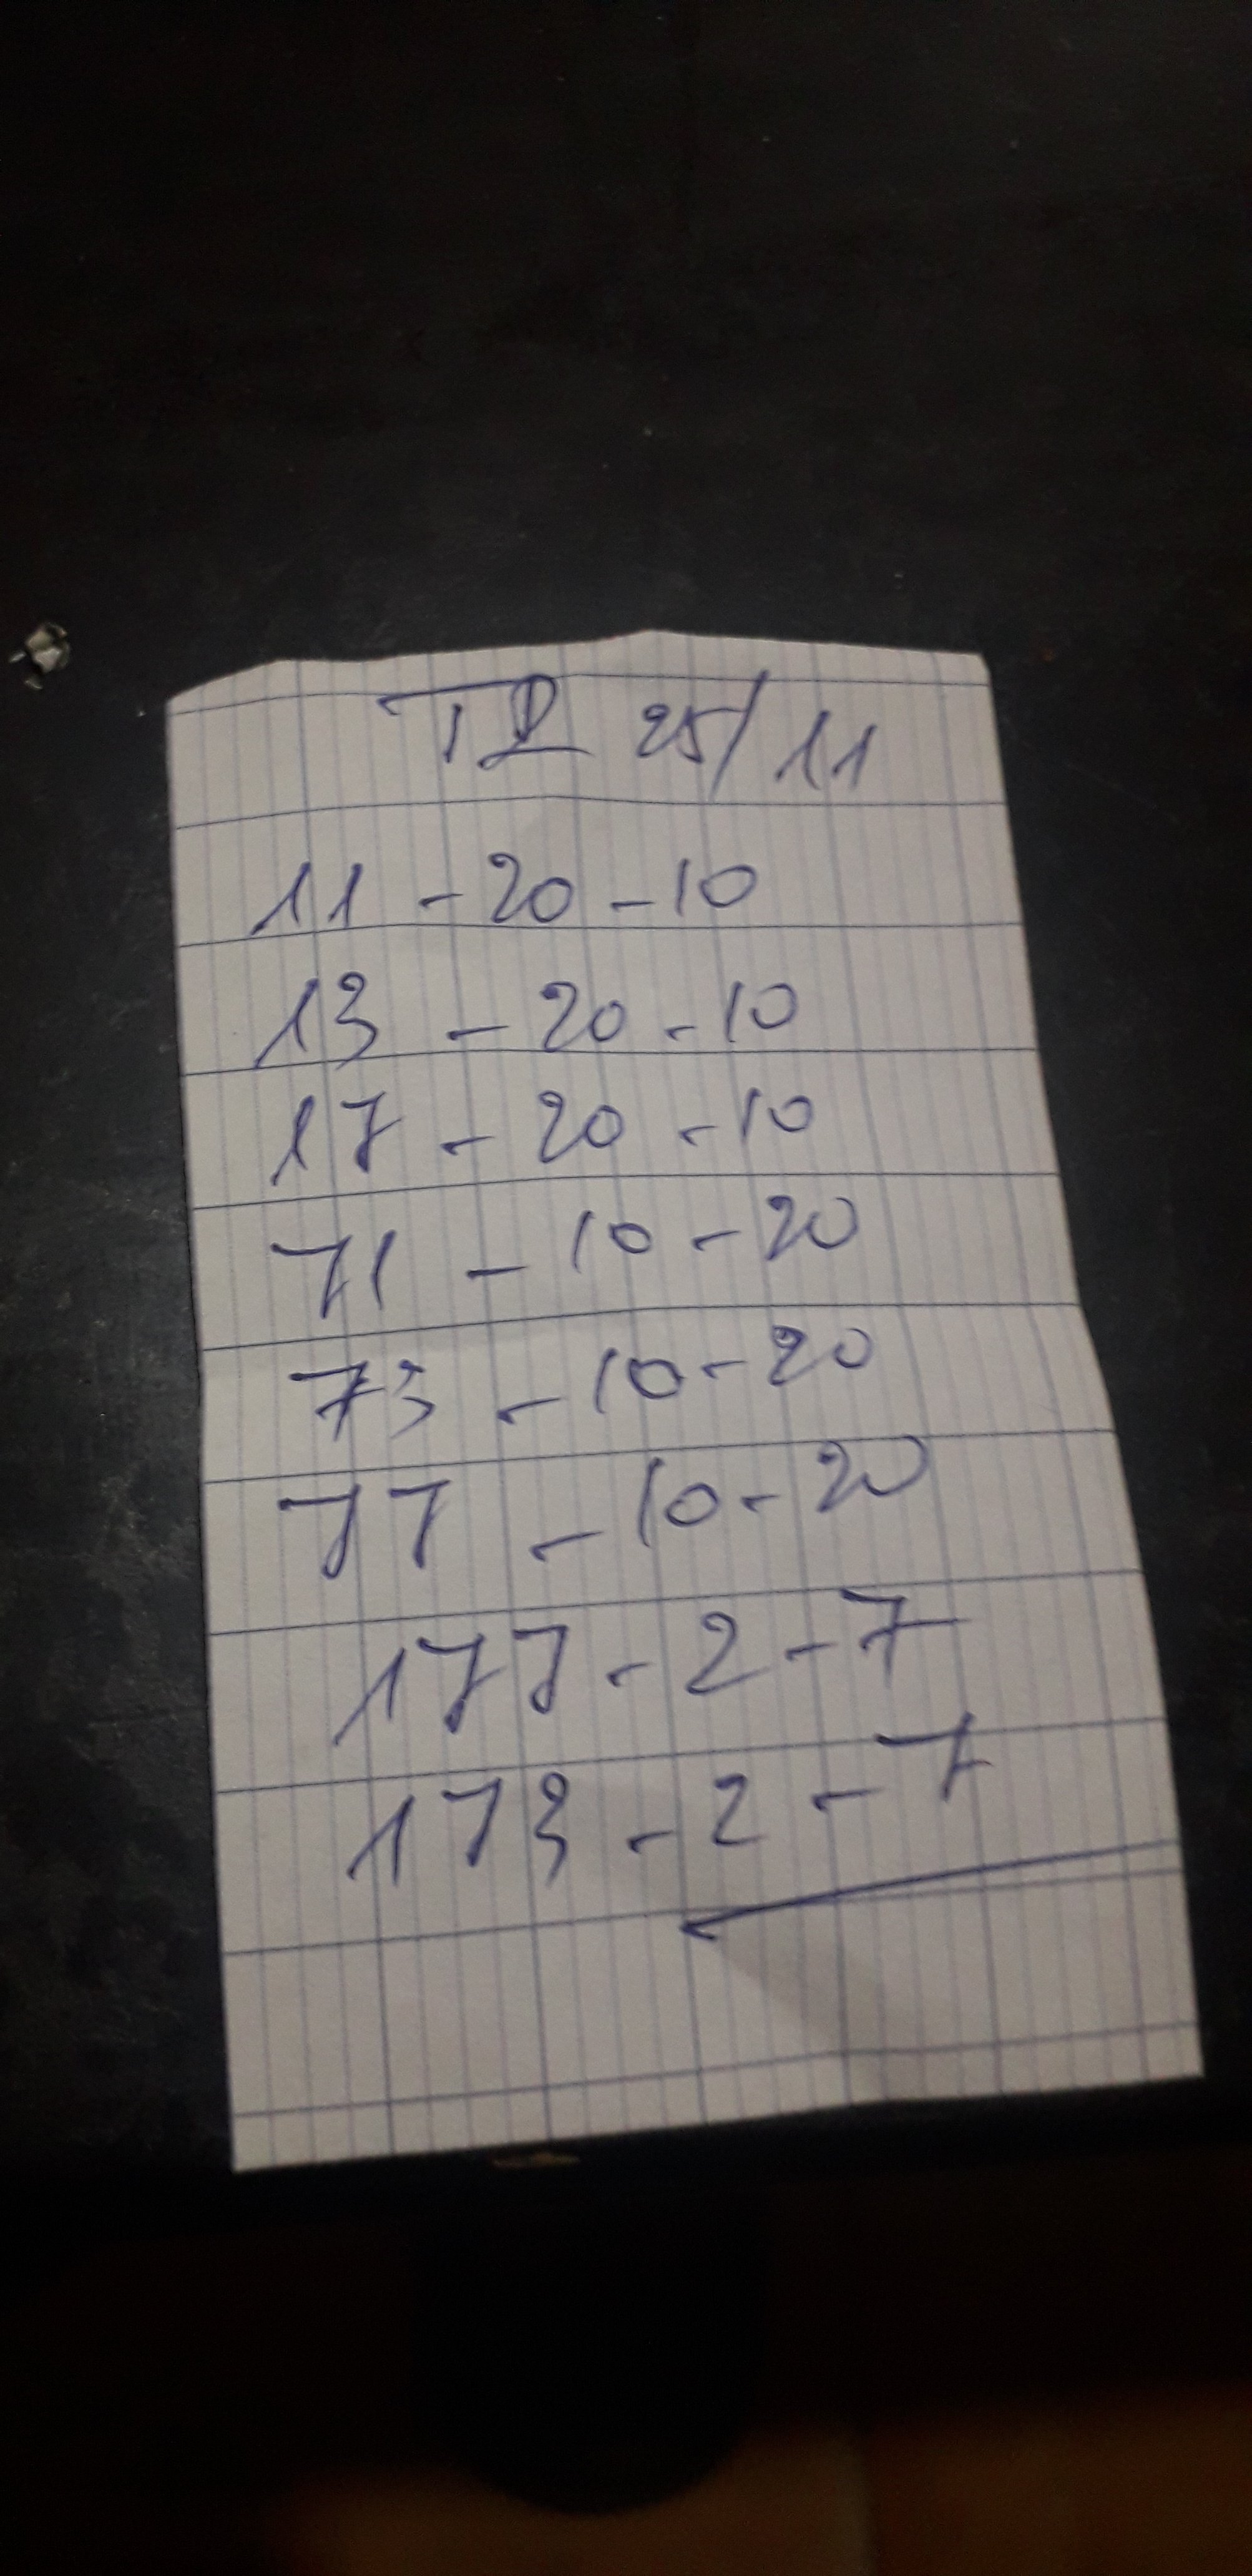 TP 25/11
11 - 20 - 10
13 - 20 - 10
17 - 20 - 10
71 - 10 - 20
73 - 10 - 20
77 - 10 - 20
177 - 2 - 7
173 - 2 - 7